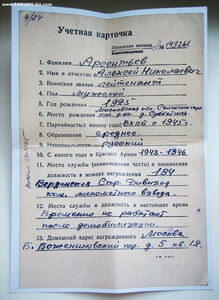 FORUMS-SU.COM
4/24
Учетная карточка
Орденская книжка
№ 143261
1. Фамилия Арсентьев
2. Имя и отчество Алексей Николаевич
3. Воинское звание лейтенант
4. Пол мужской
5. Год рождения 1925
6. Место рождения Московская обл.
7. Партийность (с какого года) ВКПб с 1945
8. Образование среднее
9. Национальность русский
10. С какого года в Красной Армии 1943-1946
11. Место службы (наименование части) и занимаемая
должность в момент награждения 184
Стр. Дивизия
ком. минометного взвода
12. Место службы и должность в настоящее время
Временно не работает
после демобилизации
13. Домашний адрес награжденного г. Москва
Б. Божениновский пер. д. 5 кв. 12